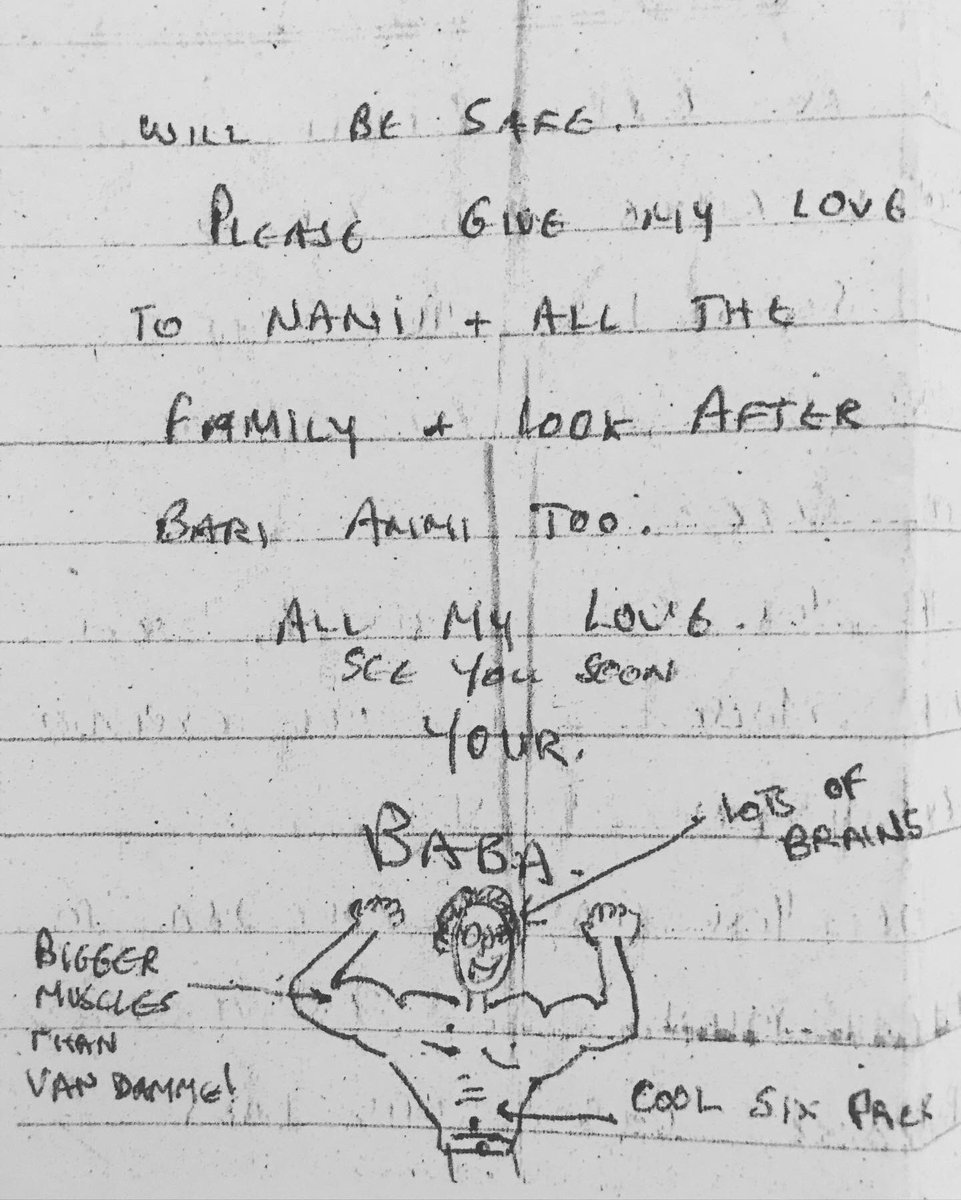 WILL BE SAFE.
PLEASE GIVE MY LOVE
TO NANI + ALL THE
FAMILY + LOOK AFTER
BARI AMMI TOO.
ALL MY LOVE.
SEE YOU SOON
YOUR.
BABA.
LOTS OF
BRAINS
BIGGER
MUSCLES
THAN
VAN DAMME!
COOL SIX PACK